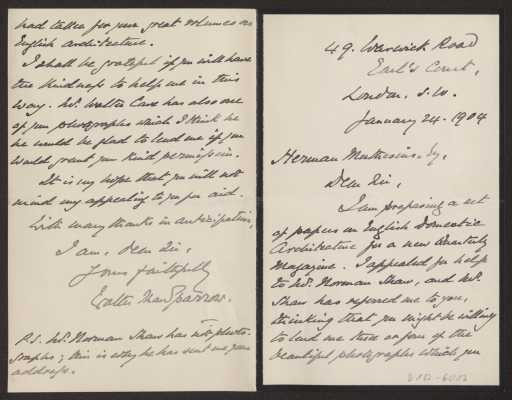 49. Warwick Road
Earl's Court,
London. S.W.
January 24. 1904
Herman Muthesius. Esq.
Dear Sir,
I am preparing a set
of papers on English Domestic
Architecture for a new Quarterly
Magazine. I appealed for help
to Mr. Norman Shaw, and Mr.
Shaw has referred me to you,
thinking that you might be willing
to lend me three or four of the
beautiful photographs which you
had taken for your great volumes on
English Architecture.
I shall be grateful if you will have
the kindness to help me in this
way. Mr. Walter Cave has also one
of your photographs which I think he
he would be glad to lend me if you
would grant your kind permission.
It is my hope that you will not
mind my appealing to you for aid.
With many thanks in anticipation,
I am, Dear Sir,
Yours faithfully
Walter Shaw Sparrow.
P.S. Mr. Norman Shaw has no photo-
graphs; this is why he has sent me your
address.